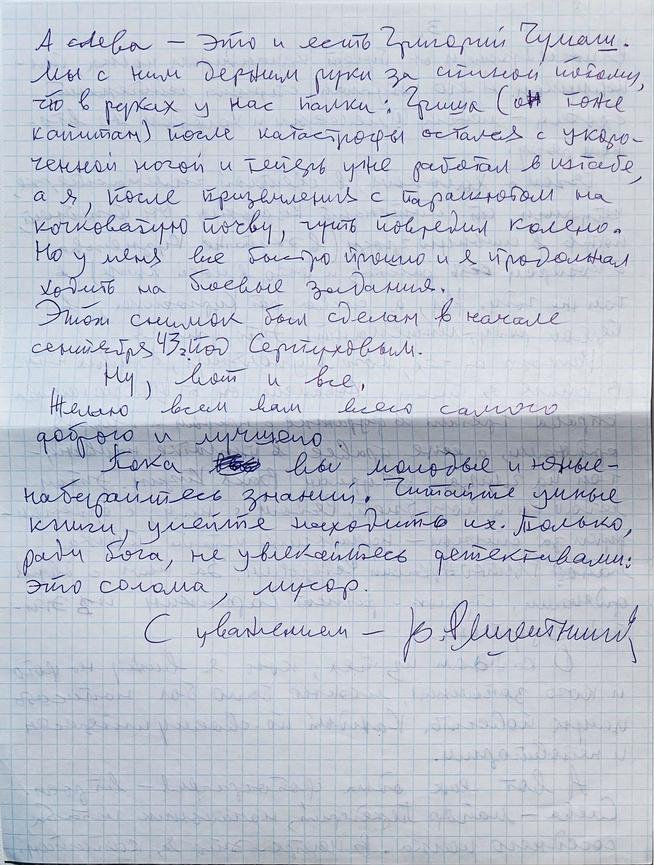 А слева – это и есть Григорий Чумаш.
Мы с ним держим руки за спиной потому,
что в руках у нас палки: Гриша (он тоже
капитан) после катастрофы остался с укоро-
ченной ногой и теперь уже работал в штабе,
а я, после приземления с парашютом на
кочковатую почву, чуть повредил колено.
Но у меня все быстро прошло и я продолжал
ходить на боевые задания.
Этот снимок был сделан в начале
сентября 43г. под Серпуховым.
Ну, вот и все.
Желаю всем вам всего самого
доброго и лучшего.
Пока вы молодые и юные –
набирайтесь знаний. Читайте умные
книги, умейте находить их. Только,
ради бога, не увлекайтесь детективами:
это солома, мусор.
С уважением –